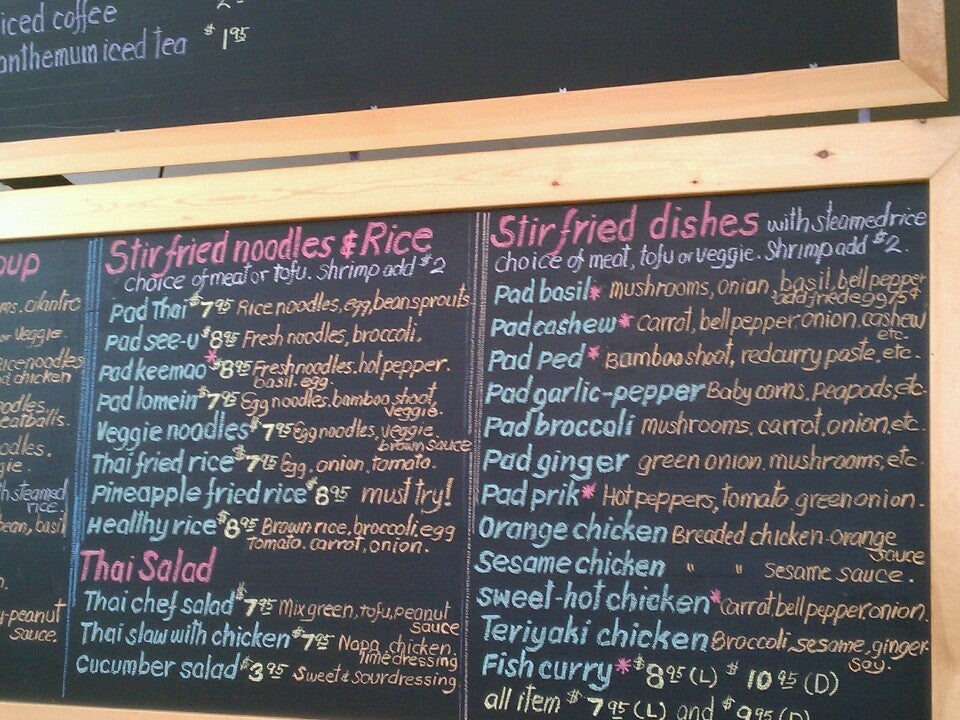 iced coffee
anthemum iced tea $1.95
oup
ms, cilantro
or veggie.
rice noodles
d chicken
noodles
eatballs.
oodles.
gie.
th steamed
rice.
bean, basil
y-peanut
sauce.
Stir fried noodles & Rice
choice of meat or tofu. Shrimp add $2
Pad Thai $7.95 Rice noodles, egg, bean sprouts
Pad see-u $8.95 Fresh noodles, broccoli.
Pad keemao* $8.95 Fresh noodles. hot pepper.
basil. egg.
Pad lomein $7.95 Egg noodles. bamboo shoot,
veggie.
Veggie noodles $7.95 Egg noodles, veggie.
brown sauce
Thai fried rice $7.95 Egg, onion, tomato.
Pineapple fried rice $8.95 must try!
Healthy rice $8.95 Brown rice, broccoli, egg
tomato. carrot, onion.
Thai Salad
Thai chef salad $7.95 Mix green, tofu, peanut
sauce
Thai slaw with chicken $7.95 Napa, chicken,
lime dressing
Cucumber salad $3.95 Sweet & sour dressing
Stir fried dishes with steamed rice
choice of meat, tofu or veggie. Shrimp add $2.
Pad basil* mushrooms, onion, basil, bell pepper
add fried egg 75¢
Pad cashew* Carrot, bell pepper onion, cashew
etc.
Pad Ped* Bamboo shoot, red curry paste, etc.
Pad garlic-pepper Baby corns, Peapods, etc.
Pad broccoli mushrooms. carrot, onion, etc.
Pad ginger green onion. mushrooms, etc.
Pad prik* Hot peppers, tomato green onion.
Orange chicken Breaded chicken-orange
sauce
Sesame chicken " " sesame sauce.
sweet-hot chicken* carrot bell pepper, onion.
Teriyaki chicken Broccoli, sesame, ginger
soy.
Fish curry* $8.95 (L) $10.95 (D)
all item $7.95 (L) and $9.95 (D)